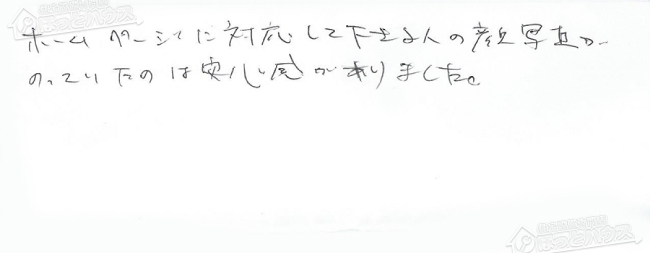 ホームページに対応して下さる人の顔写真が
のっていたのは安心感がありました。